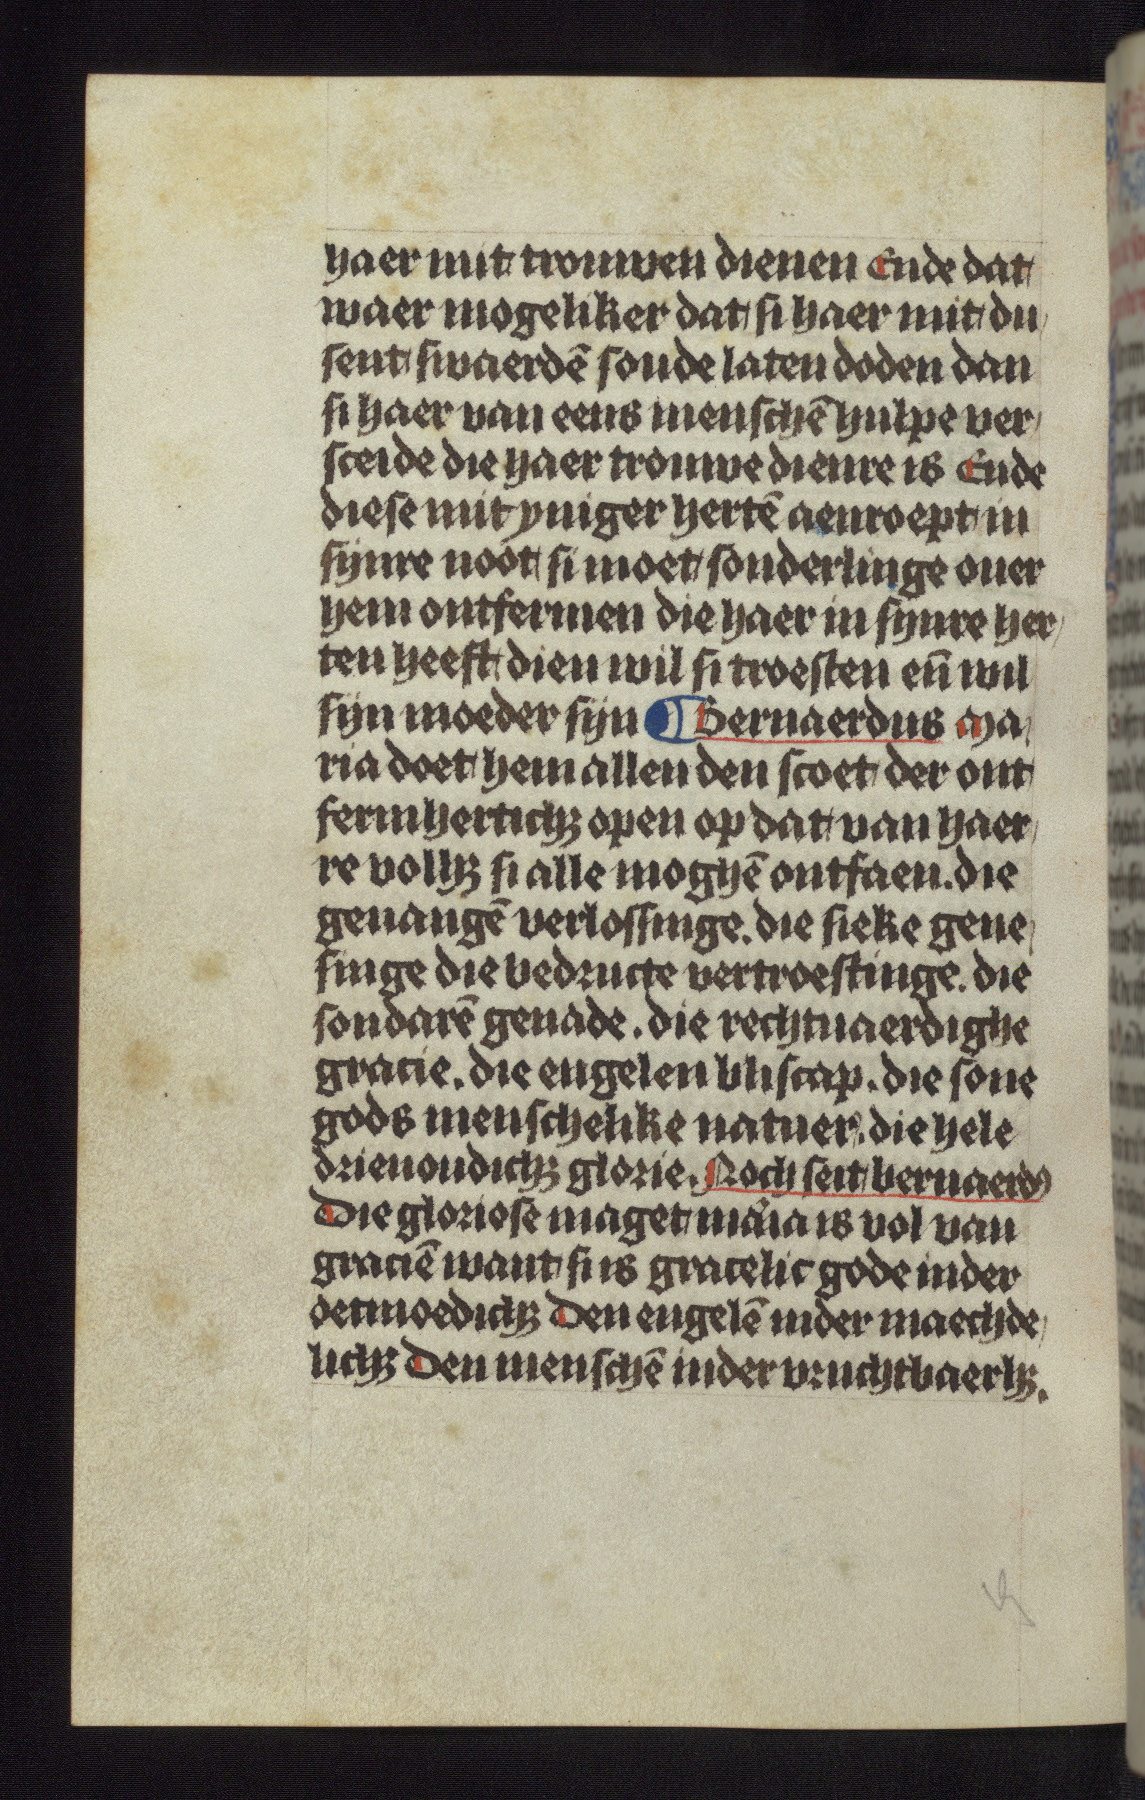 haer mit trouwen dienen Ende dat
waer mogeliker dat si haer mit du
sent swaerdē soude laten doden dan
si haer van eens menschē hulpe ver
sceide die haer trouwe dienre is Ende
diese mit yniger hertē aenroept in
sijnre noot si moet sonderlinge ouer
hem ontfermen die haer in sijnre her
ten heeft dien wil si troesten eñ wil
sijn moeder sijn ¶ Bernaerdus Ma
ria doet hem allen den scoet der ont
fermherticꝫ open op dat van haer
re vollꝫ si alle moghē ontfaen. die
geuangē verlossinge. die sieke gene
singe die bedructe vertroestinge. die
sondarē genade. die rechtuaerdighe
gracie. die engelen bliscap. die sone
gods menschelike natuer. die hele
drieuoudichꝫ glorie. Noch seit bernaerdꝰ
Die gloriose maget maria is vol van
graciē want si is gracelic gode inder
oetmoedichꝫ Den engelē inder maechde
lichꝫ Den menschē inder vruchtbaerhꝫ.